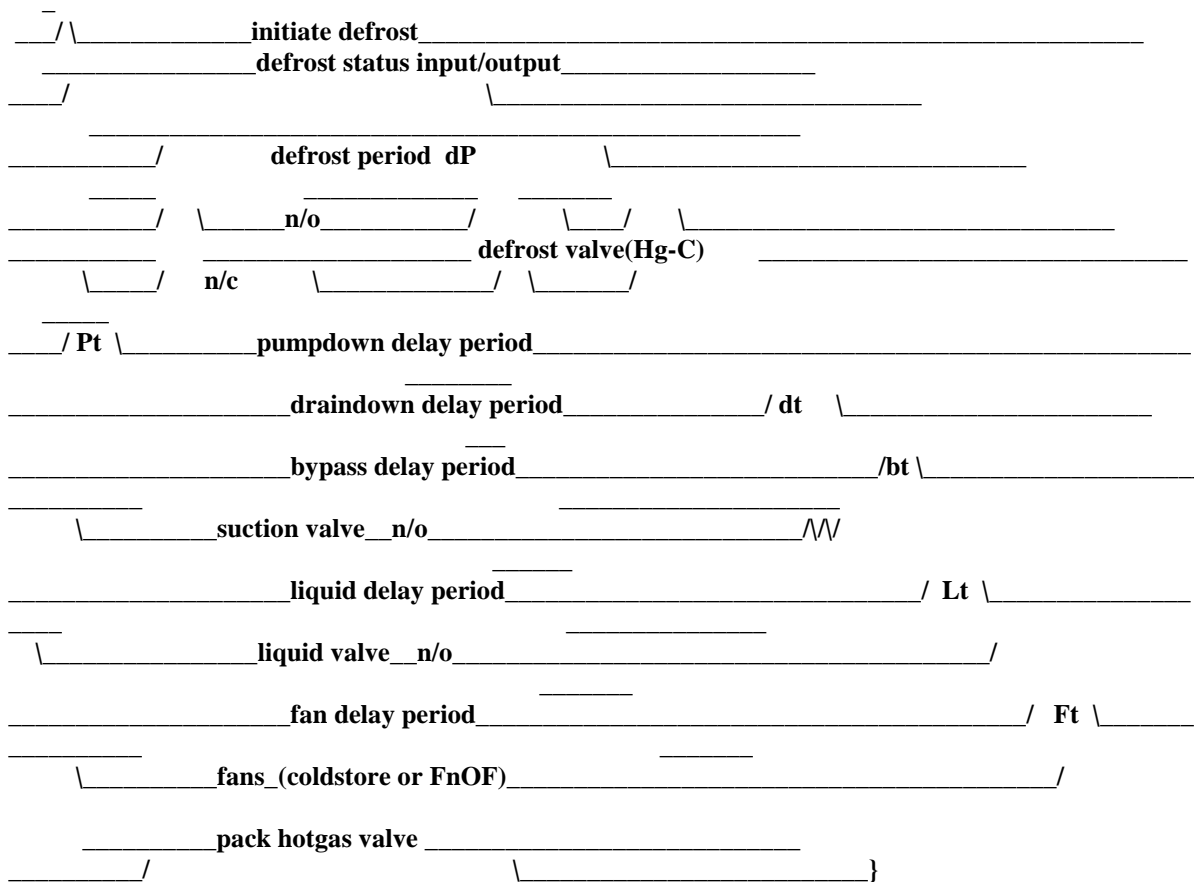 initiate defrost
defrost status input/output
defrost period dP
n/o
defrost valve(Hg-C)
n/c
Pt pumpdown delay period
draindown delay period dt
bypass delay period bt
suction valve__n/o
liquid delay period Lt
liquid valve__n/o
fan delay period Ft
fans_(coldstore or FnOF)
pack hotgas valve
}